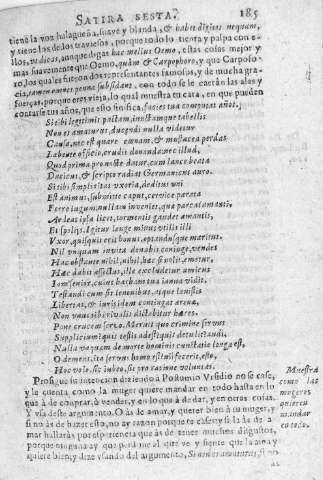 SATIRA SESTA. 185
tiene la voz halagueña, suave y blanda, & habet digitos nequam,
y tiene los dedos traviesos, porque todo lo tienta y palpa con e-
llos, ut dicas, aunque digas hac mellus Oemo, estas cosas mejor y
mas suavemente que Oemo, quàm & Carpophoro, y que Carpofo-
ro, los quales fueron dos representantes famosos, y de mucha gra-
cia, tamen omnes penne subsidant, con todo se le caerán las alas y
fuerças, porque eres vieja, lo qual muestra tu cara, en que pueden
contarse tus años, que esto sinifica, facies tua computat años.
Si tibi legitimis pactam, iunctamque tabellis
Non es amaturus, ducendi nulla videtur
Causa, nec est quare cœnam, & mustacea perdas
Labente officio, crudis donanda: nec illud,
Quod prima pro nocte datur, cum lance beata
Dacicus, & scripto radiat Germanicus auro.
Si tibi simplicitas vxoria, deditus vni
Est animus, submitte caput, cervice parata
Ferre iugum: nullam invenies, quæ parcat amanti,
Ardeat ipsa licet, tormentis gaudet amantis,
Et spolijs. Igitur longe minus vtilis illi
Vxor, quisquis erit bonus, optandusque maritus.
Nil vnquam invita donabis coniuge, vendes
Hac obstante nihil, nihil, hæc si nolit, emetur,
Hæc dabit affectus, ille excludetur amicus
Iam senior, cuius barbam tua ianua vidit.
Testandi cum sit lenonibus, atque lanistis
Libertas, & iuris idem contingat arenæ,
Non vnus tibi rivalis dictabitur hæres.
Pone crucem servo. Meruit quo crimine servus
Supplicium? quis testis adest? quis detulit? audi,
Nulla vnquam de morte hominis cunctatio longa est,
O demens, ita servus homo est? nil fecerit, esto,
Hoc volo, sic iubeo, sit pro ratione voluntas.
Prosigue su intencion diziendo a Posthumio Vrsidio no se case,
y le cuenta como la muger quiere mandar en todo hasta en lo
que à de comprar, ò vender, y en lo que à de dar, y en otras cosas.
Y vsa deste argumento. O às de amar, y querer bien à tu muger, y
si no às de hazer esto, no ay razon porque te cases: y si la às de a-
mar hallaràs por esperiencia que às de tener muchos disgustos,
porque ninguna ay que perdone al que ve y siente que la ama y
quiere bien; dize vsando del argumento, Si non es amaturus, si no
as
Muestra
como las
mugeres
quieren
mandar
en todo.